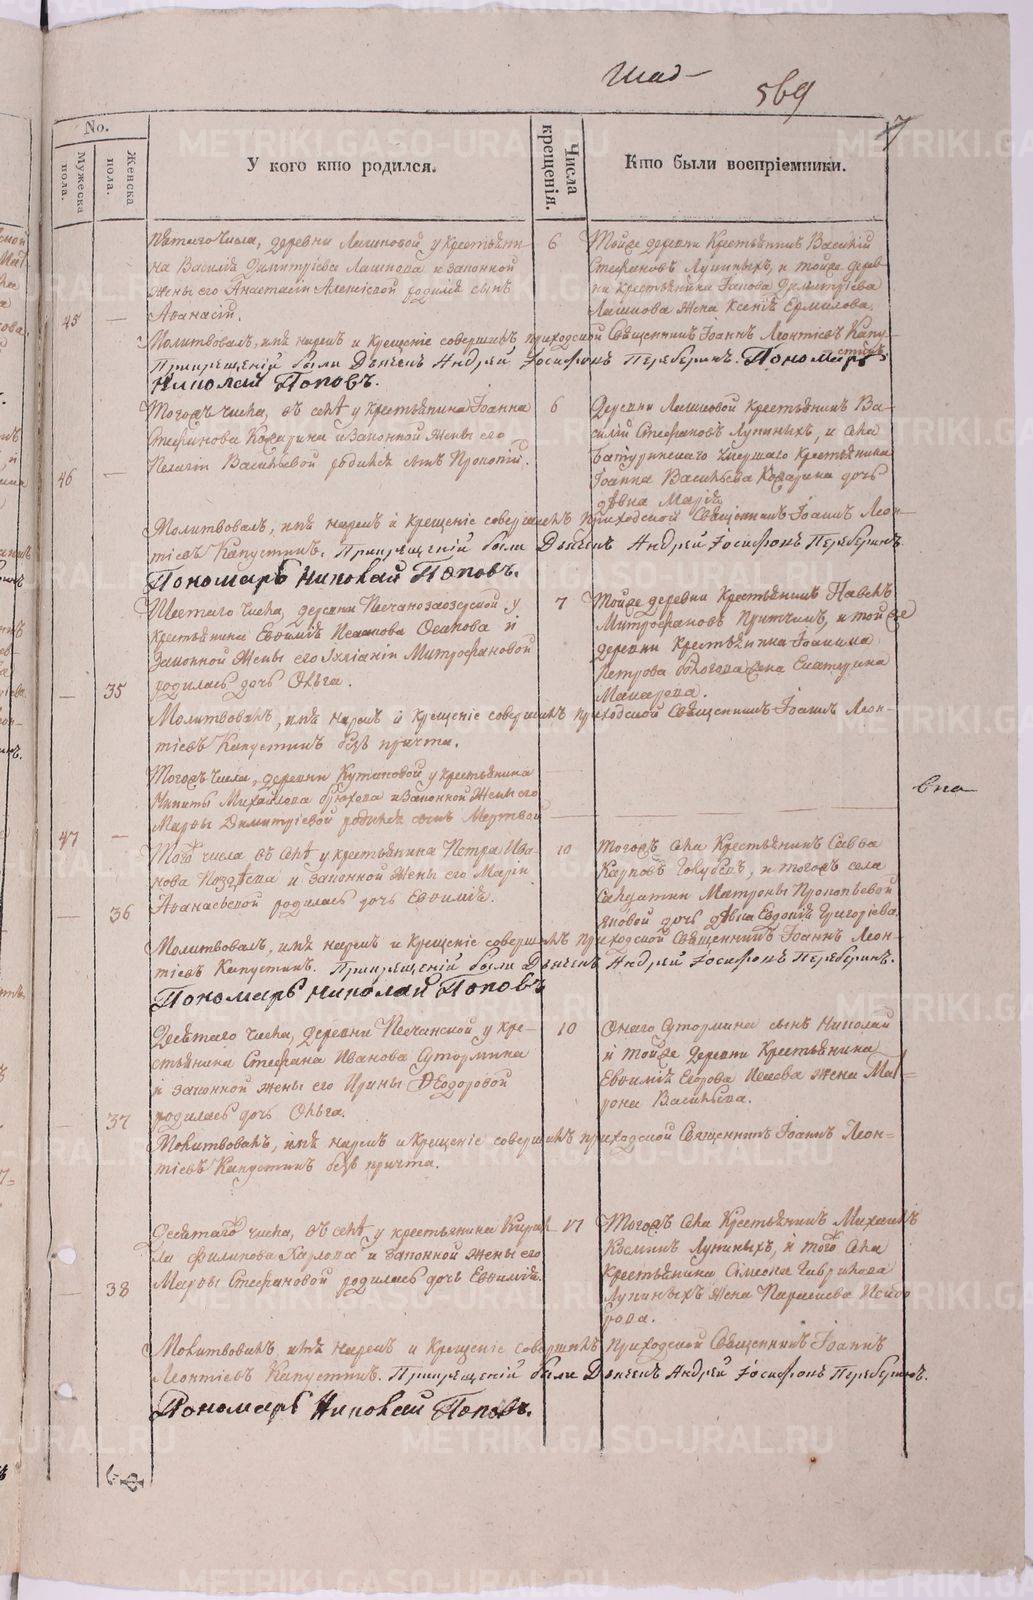 Шад-
569
7
No.
Мужеска пола.
Женска пола.
У кого кто родился.
Числа крещенія.
Кто были воспріемники.
45 —
пятаго числа, деревни Лашповой, у крестьяни-
на Василія Димитріева Лашпова и законной
жены его Анастасіи Алексіевой родился сынъ
Аѳанасій.
6
Тойже деревни Крестьянинъ Василій
Стефановъ Лупиныхъ, и тойже дерев-
ни крестьянина Іакова Димитріева
Лашпова жена Ксенія Ермилова.
Молитвовалъ, имя нарекъ и крещеніе совершилъ приходской Священникъ Іоаннъ Леонтіевъ Капу-
стинъ
Прикрещеніи были Дьячекъ Андрей Іосифовъ Переберинъ. Пономарь
Николай Поповъ.
46 —
Тогожъ числа, въ селѣ у крестьянина Іоанна
Стефанова Кокарина и законной жены его
Пелагіи Васильевой родился сынъ Прокопій.
6
Деревни Лашповой Крестьянинъ Ва-
силій Стефановъ Лупиныхъ, и села
Батуринскаго умершаго Крестьянина
Іоанна Васильева Кокарина дочь
дѣвка Марія
Молитвовалъ, имя нарекъ и крещеніе совершилъ приходской Священникъ Іоаннъ Леон-
тіевъ Капустинъ. Прикрещеніи были Дьячекъ Андрей Іосифовъ Переберинъ.
Пономарь Николай Поповъ.
— 35
Шестаго числа, деревни Песчанозаозерской, у
крестьянина Евѳимія Осипова и
законной жены его Іуліаніи Митрофановой
родилась дочь Ольга.
7
Тойже деревни Крестьянинъ Павелъ
Митрофановъ Притчинъ, и тойже
деревни крестьянина Іоанна
Петрова жена Екатерина
Макарова.
Молитвовалъ, имя нарекъ и крещеніе совершилъ приходской Священникъ Іоаннъ Леон-
тіевъ Капустинъ безъ причта.
47 —
Тогожъ числа, деревни Кутиковой у крестьянина
Никиты Михайлова Брюхова и законной жены его
Марѳы Димитріевой родился сынъ Мертвой
— 36
Того числа въ селѣ у крестьянина Петра Ива-
нова Поздѣева и законной жены его Маріи
Аѳанасьевой родилась дочь Евѳимія.
10
Тогожъ села Крестьянинъ Савва
Карповъ Голубевъ, и тогожъ села
Солдатки Матроны Прокопьевой
дочь дѣвка Евдокія Григорієва.
Молитвовалъ, имя нарекъ и крещеніе совершилъ приходской Священникъ Іоаннъ Леон-
тіевъ Капустинъ. Прикрещеніи были Дьячекъ Андрей Іосифовъ Переберинъ.
Пономарь Николай Поповъ
— 37
Девятаго числа, деревни Песчанской, у кре-
стьянина Стефана Иванова Сутормина
и законной жены его Ирины Ѳеодоровой
родилась дочь Ольга.
10
Онаго Сутормина сынъ Николай
и тойже деревни Крестьянина
Евѳимія Егорова Исаева жена Мат-
рона Васильева.
Молитвовалъ, имя нарекъ и крещеніе совершилъ приходской Священникъ Іоаннъ Леон-
тіевъ Капустинъ безъ причта.
— 38
Десятаго числа, въ селѣ у крестьянина Кирил-
ла Филипова Карпова и законной жены его
Марѳы Стефановой родилась дочь Евѳимія.
17
Тогожъ села Крестьянинъ Михаилъ
Косминъ Лупиныхъ, и того села
Крестьянина Симеона Гаврилова
Лупиныхъ жена Параскева Исидо
рова.
Молитвовалъ имя нарекъ и крещеніе совершилъ приходской Священникъ Іоаннъ
Леонтіевъ Капустинъ. Прикрещеніи были Дьячекъ Андрей Іосифовъ Переберинъ.
Пономарь Николай Поповъ.